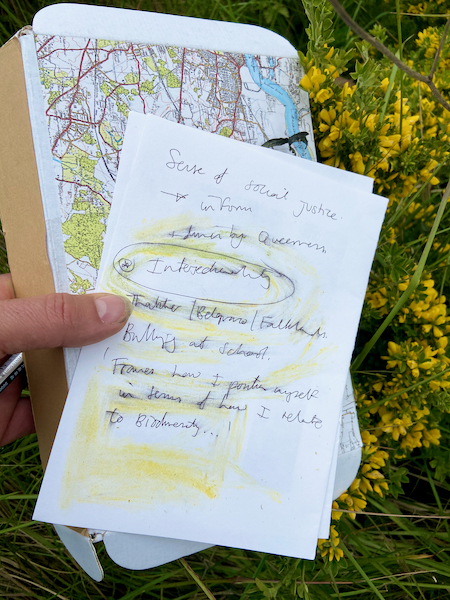 Sense of social justice.
→ inform
+ driven by Queerness.
Intersectionality
Thatcher / Belgrano / Falklands.
Bullying at School.
Frames how I position myself
in terms of how I relate
to Biodiversity...!